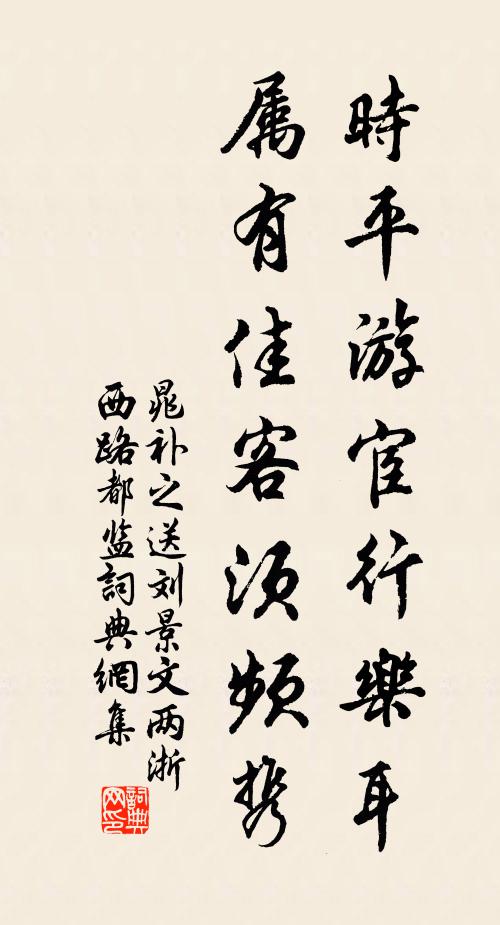 時平游宦行樂耳
属有佳客须频携
晁补之送刘景文两浙
西路都监詞典網集
詞典网印